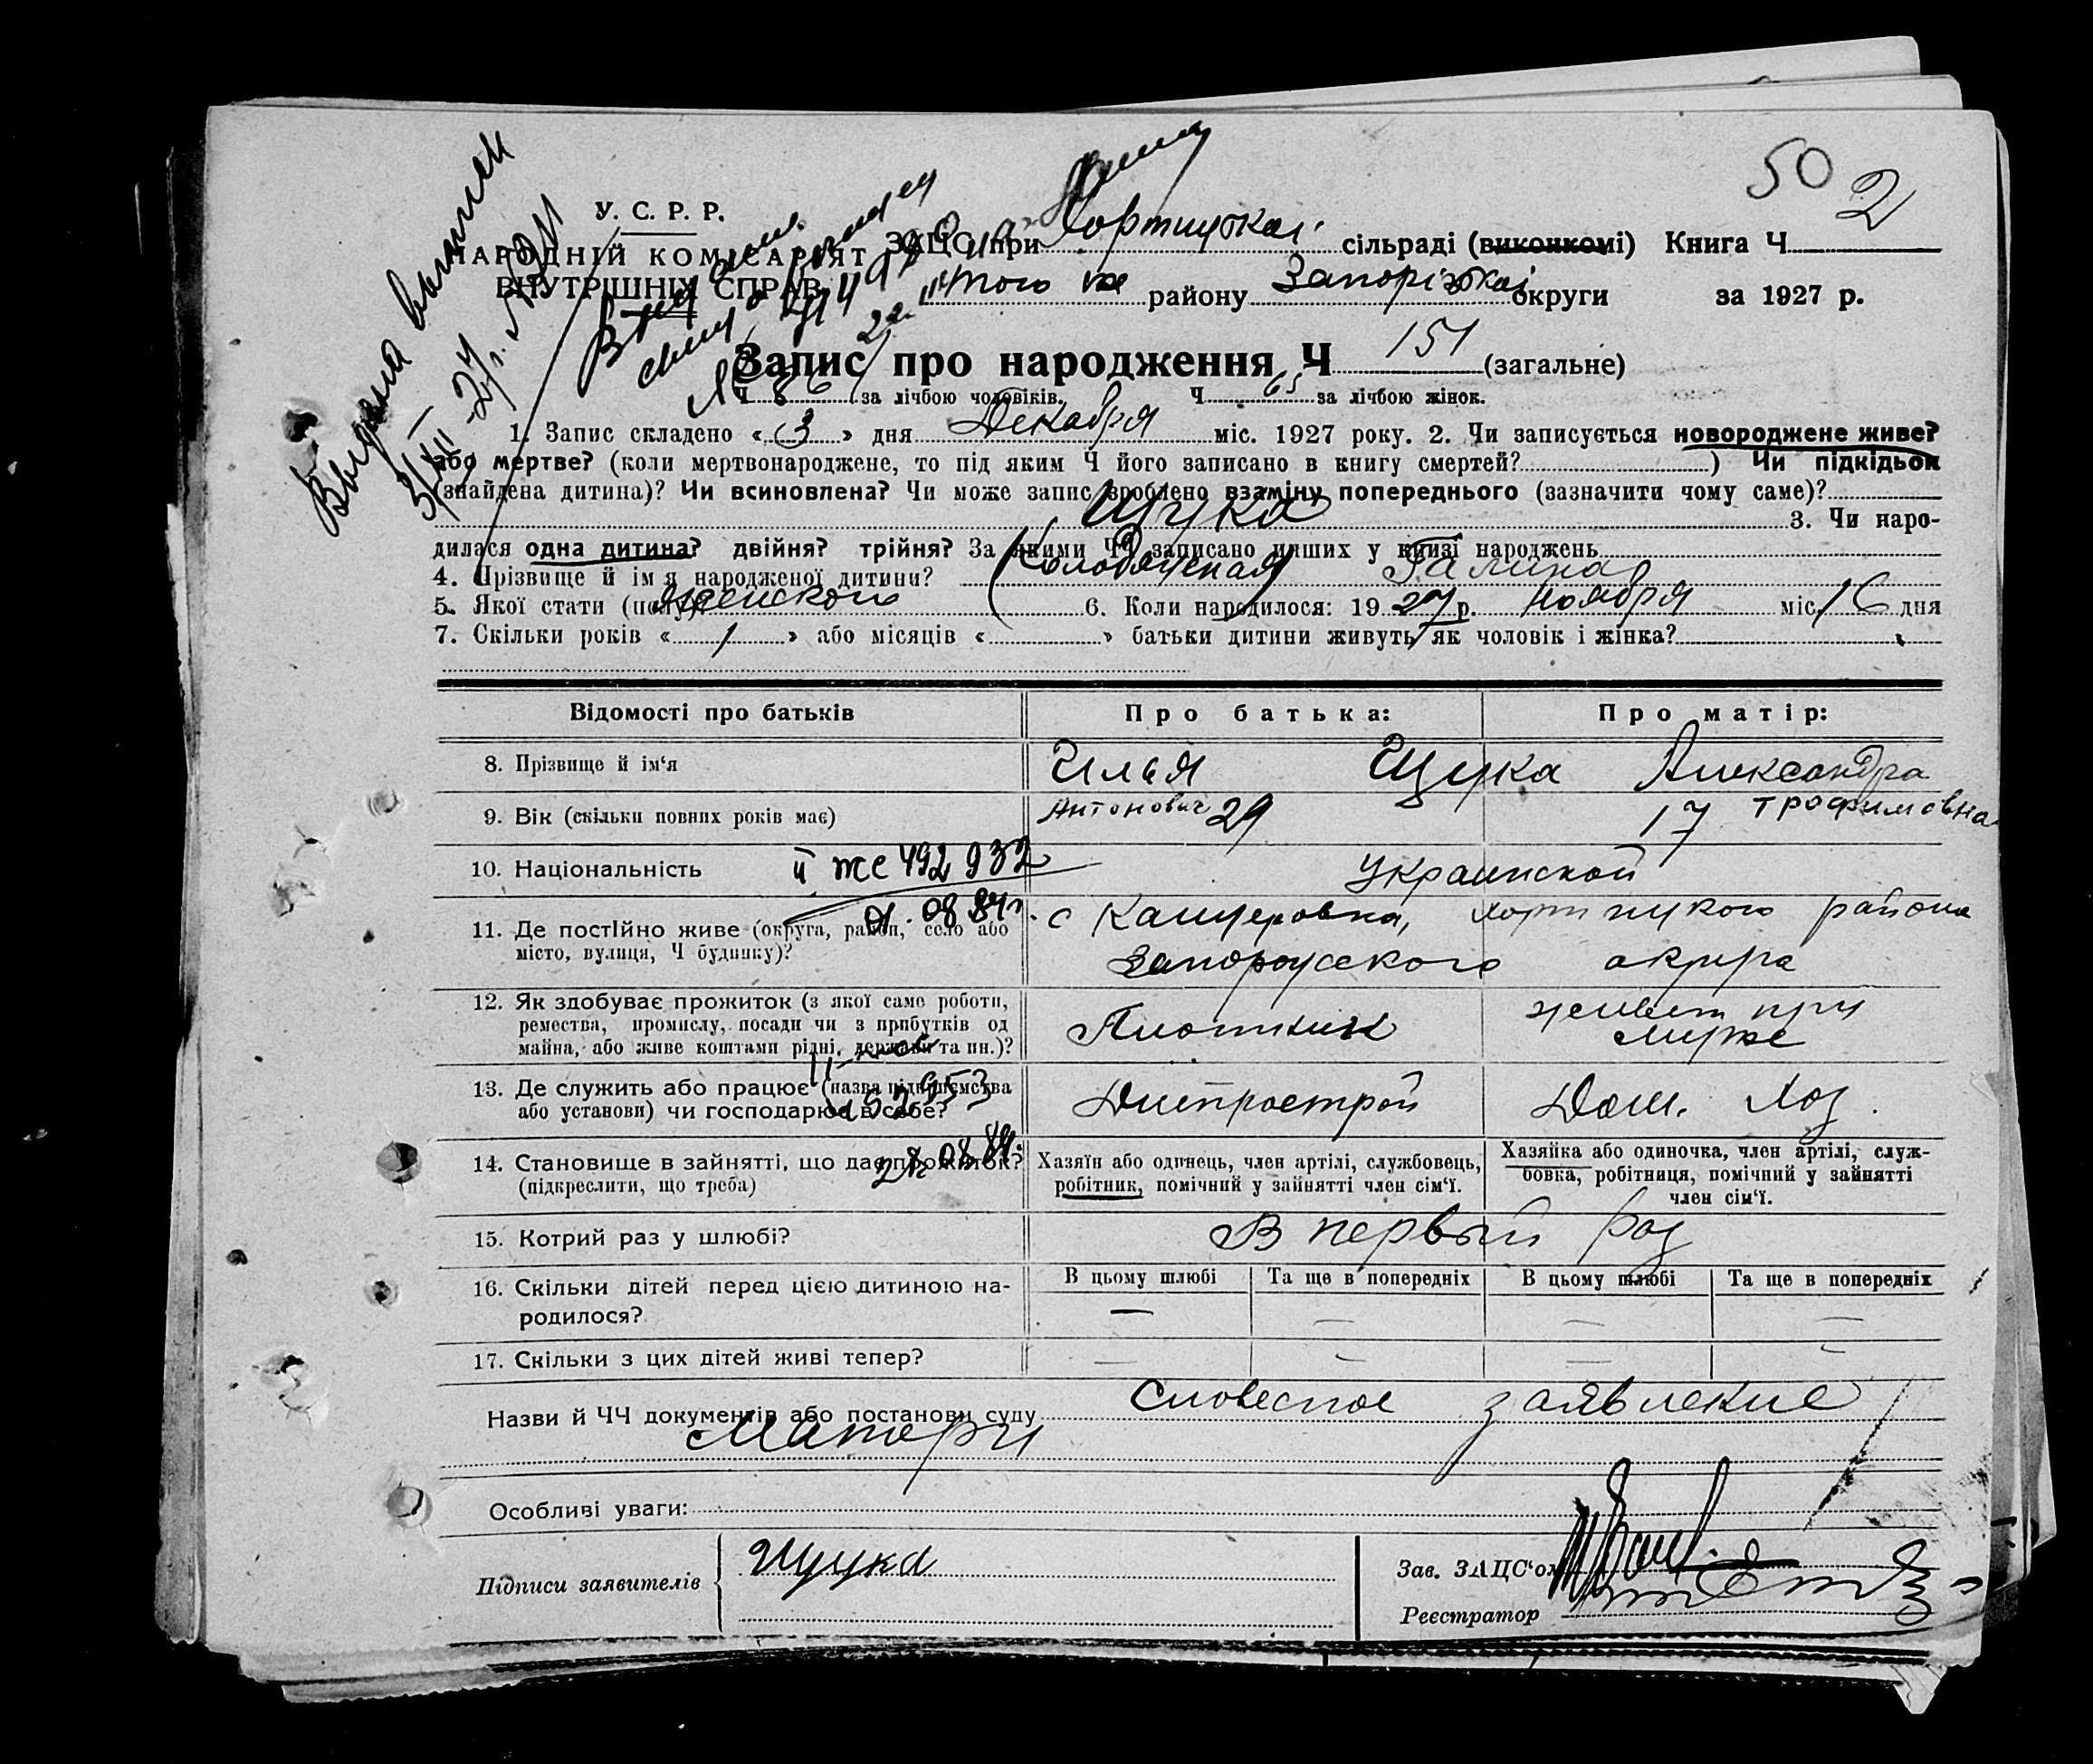 50
2
У. С. Р. Р.
НАРОДНІЙ КОМІСАРІЯТ
ВНУТРІШНІХ СПРАВ
Выдана выписк
ЗАЦС при Хортицкой сільраді (виконкомі) Книга Ч
того же району Запорізької округи за 1927 р.
Запис про народження Ч 151 (загальне)
Ч 86 за лічбою чоловіків. Ч 65 за лічбою жінок.
1. Запис складено « 3 » дня Декабря міс. 1927 року. 2. Чи записується новороджене живе?
або мертве? (коли мертвонароджене, то під яким Ч його записано в книгу смертей? ) Чи підкідьок
(знайдена дитина)? Чи всиновлена? Чи може запис зроблено взаміну попереднього (зазначити чому саме)?
Щука 3. Чи наро-
дилася одна дитина? двійня? трійня? За якими ЧЧ записано инших у книзі народжень
4. Прізвище й ім'я народженої дитини? Галина
5. Якої стати (полу)? женского 6. Коли народилося: 1927 р. ноября міс. 16 дня
7. Скільки років « 1 » або місяців « » батьки дитини живуть як чоловік і жінка?
Відомості про батьків Про батька: Про матір:
8. Прізвище й ім'я Илья Щука Александра
9. Вік (скільки повних років має) Антонович 29 17 Трофимовна
10. Національність ІІ жс 492932 Украинской
01.08.84г.
11. Де постійно живе (округа, район, село або с Канцеровка, Хортицкого района
місто, вулиця, Ч будинку)? Запорожского округа
12. Як здобуває прожиток (з якої саме роботи, Плотник живет при
ремества, промислу, посади чи з прибутків од муже
майна, або живе коштами рідні, держави та ин.)?
13. Де служить або працює (назва підприємства Днипрострой Дом. Хоз.
або установи) чи господарює в себе?
28.08.84.
14. Становище в зайнятті, що дає прожиток? Хазяїн або одинець, член артілі, службовець, Хазяйка або одиночка, член артілі, служ-
(підкреслити, що треба) робітник, помічний у зайнятті член сім'ї. бовка, робітниця, помічний у зайнятті
член сім'ї.
15. Котрий раз у шлюбі? В первый раз
16. Скільки дітей перед цією дитиною на- В цьому шлюбі Та ще в попередніх В цьому шлюбі Та ще в попередніх
родилося? — — — —
17. Скільки з цих дітей живі тепер? — — — —
Назви й ЧЧ документів або постанови суду Словесное заявление
матери
Особливі уваги:
Підписи заявителів Щука
Зав. ЗАЦС'ом
Реєстратор